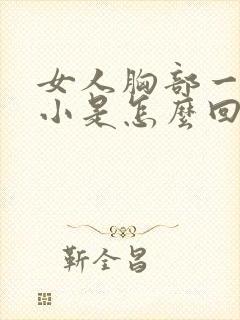 女人胸部一
小是怎麼回
靳全昌